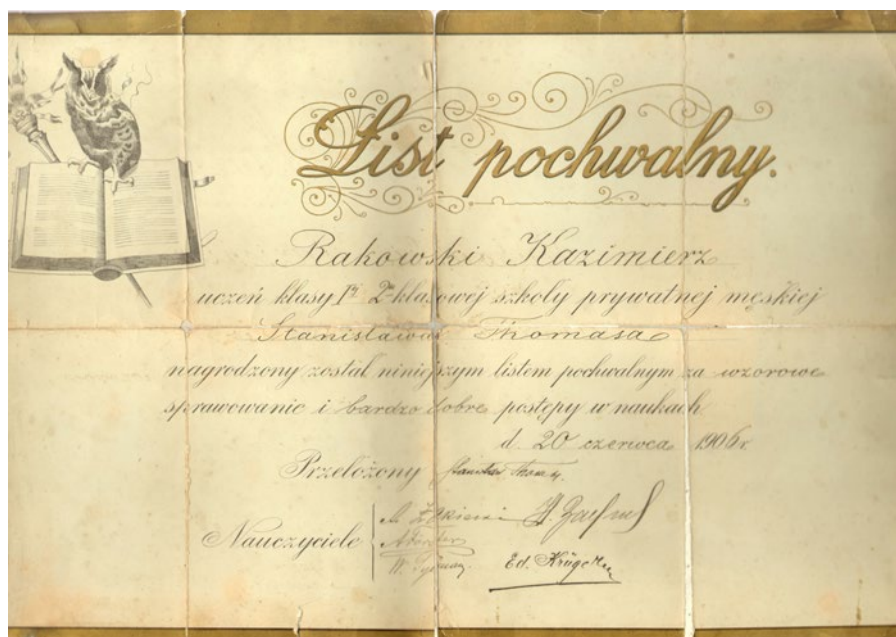 List pochwalny.
Rakowski Kazimierz
uczeń klasy Iej 2klasowej szkoły prywatnej męskiej
Stanisława Thomasa
nagrodzony został niniejszym listem pochwalnym za wzorowe
sprawowanie i bardzo dobre postępy w naukach
d. 20 czerwca 1906 r.
Przełożony Stanisław Thomas
Nauczyciele
Ed. Krüger